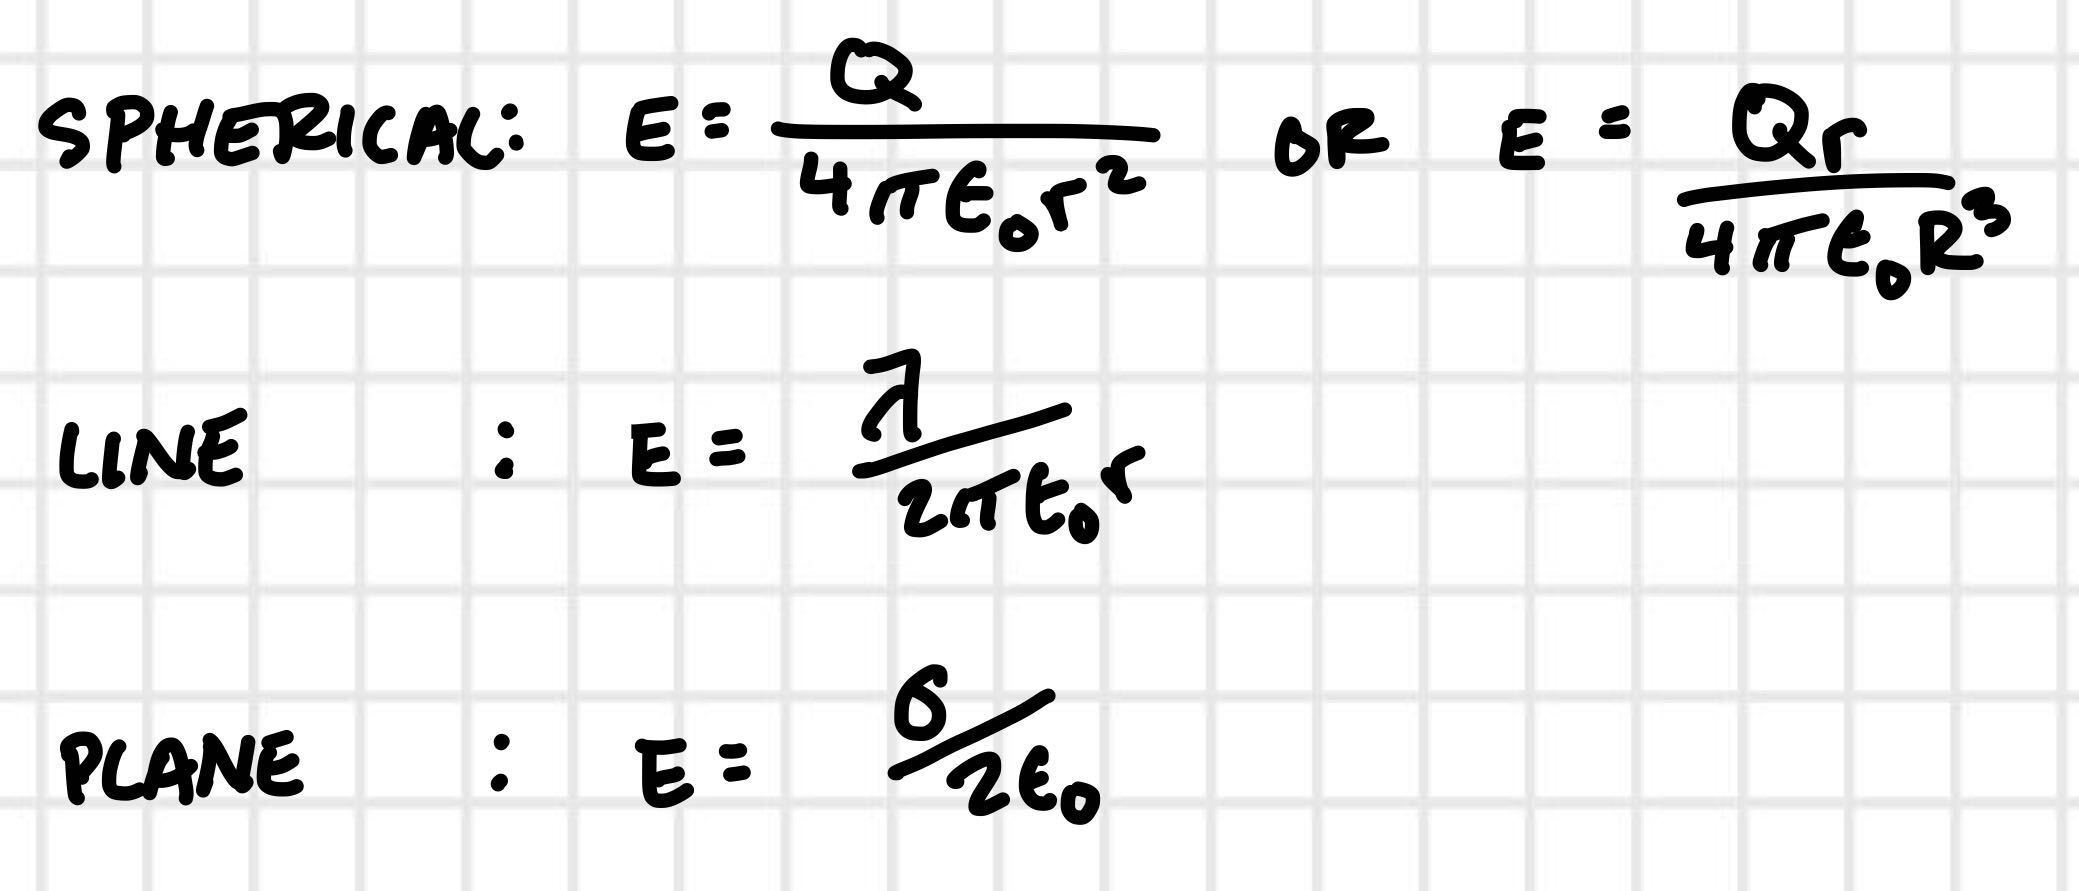 SPHERICAL: E = Q/4πε₀r² OR E = Qr/4πε₀R³
LINE : E = λ/2πε₀r
PLANE : E = σ/2ε₀